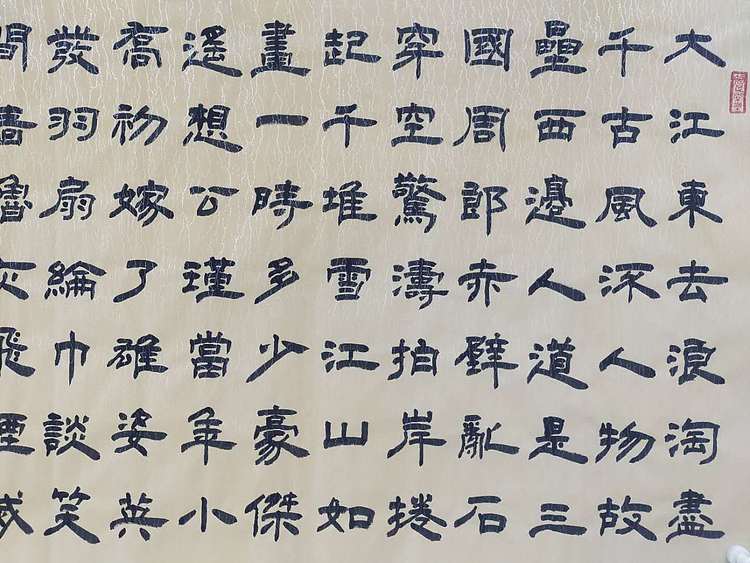 大江東去浪淘盡
千古風流人物故
壘西邊人道是三
國周郎赤壁亂石
穿空驚濤拍岸捲
起千堆雪江山如
畫一時多少豪傑
遙想公瑾當年小
喬初嫁了雄姿英
發羽扇綸巾談笑
間灰飛